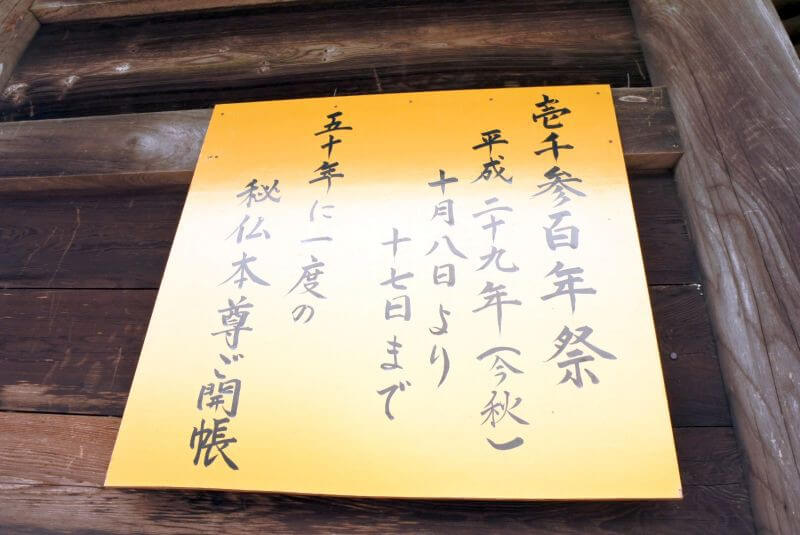 壱千参百年祭
平成二十九年(今秋)
十月八日より
十七日まで
五十年に一度の
秘仏本尊ご開帳